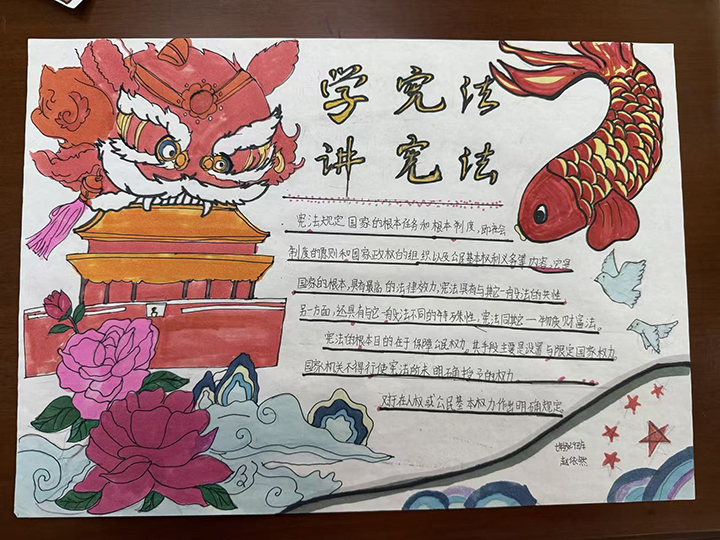 学宪法
讲宪法
宪法规定国家的根本任务和根本制度,即社会
制度的原则和国家政权的组织以及公民基本权利义务等内容,宪是
国家的根本,具有最高的法律效力,宪法具有与其它一般法的共性
另一方面,还具有与它一般法不同的特殊性,宪法同其它一物质财富法。
宪法的根本目的在于保障公民权力,其手段主要是设置与限定国家权力
国家机关不得行使宪法的未明确授予的权力
对于在人权或公民基本权力作出明确规定
赵依然